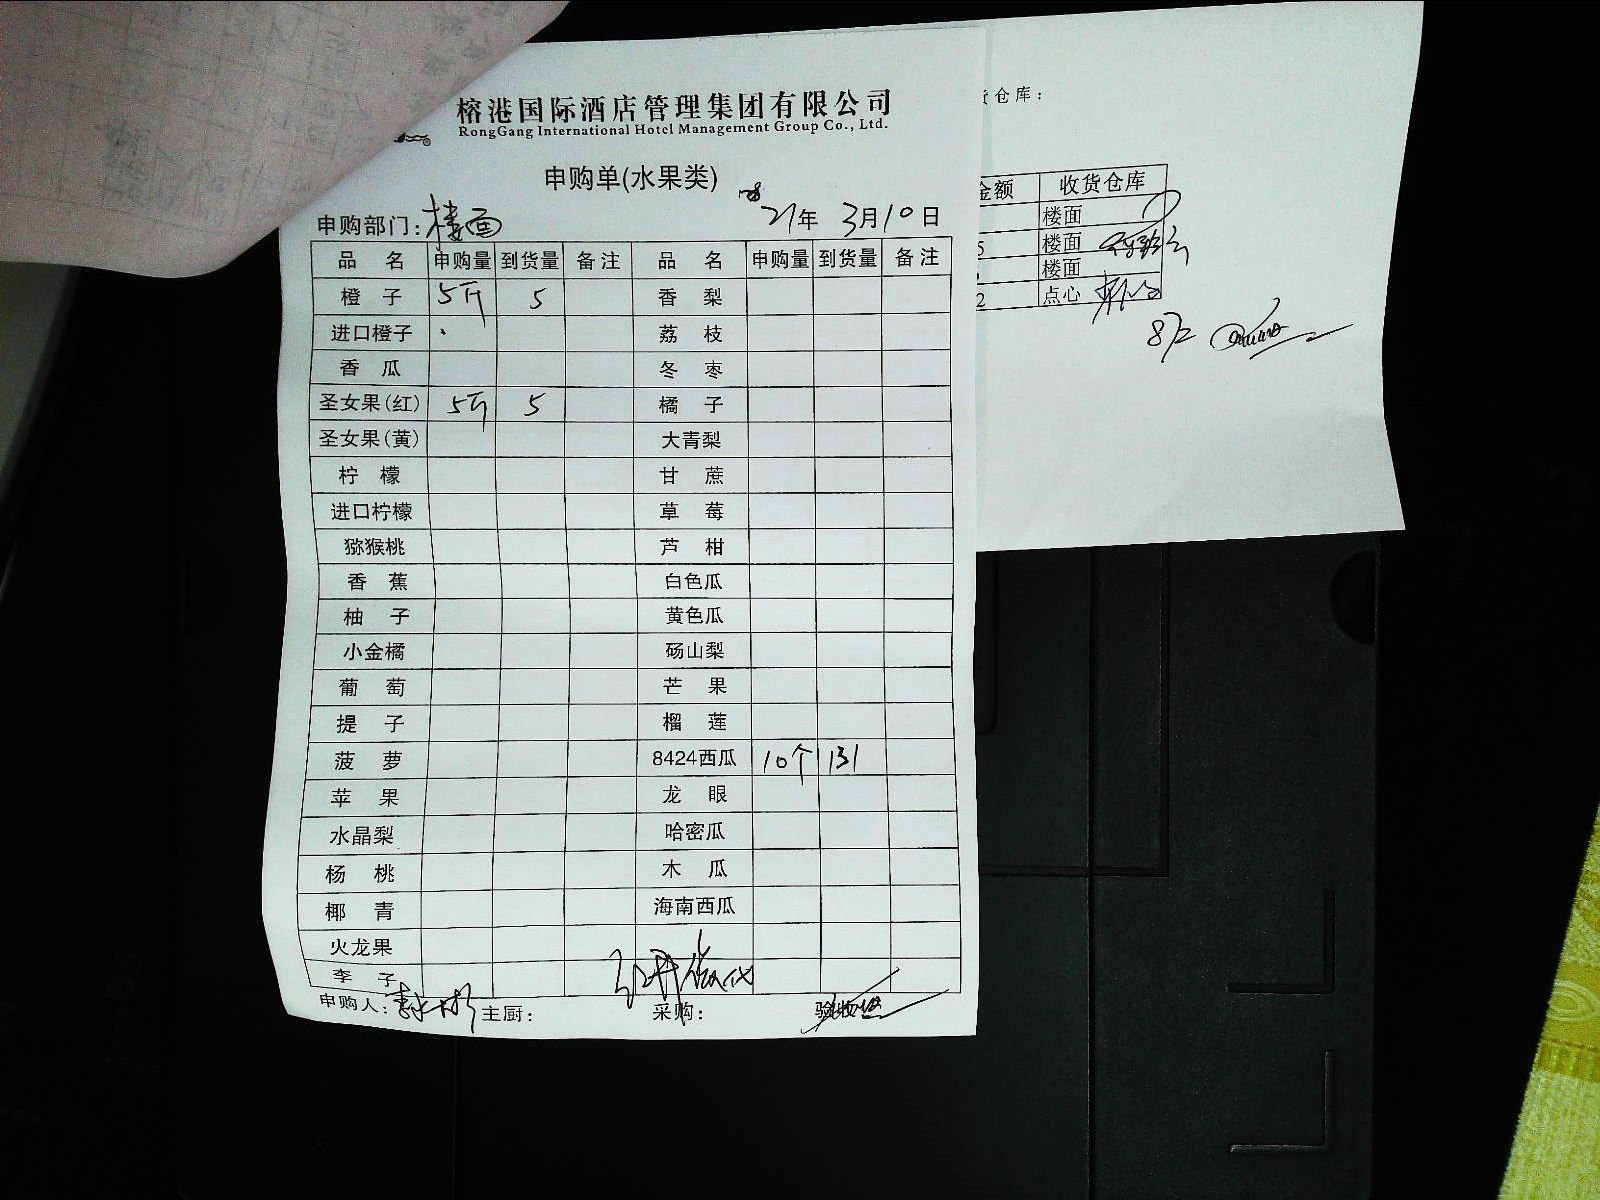 榕港国际酒店管理集团有限公司
RongGang International Hotel Management Group Co., Ltd.
申购单(水果类)
申购部门：楼面 21年 3月10日
品名 申购量 到货量 备注 品名 申购量 到货量 备注
橙子 5斤 5 香梨
进口橙子 荔枝
香瓜 冬枣
圣女果(红) 5斤 5 橘子
圣女果(黄) 大青梨
柠檬 甘蔗
进口柠檬 草莓
猕猴桃 芦柑
香蕉 白色瓜
柚子 黄色瓜
小金橘 砀山梨
葡萄 芒果
提子 榴莲
菠萝 8424西瓜 10个 131
苹果 龙眼
水晶梨 哈密瓜
杨桃 木瓜
椰青 海南西瓜
火龙果
李子
申购人： 主厨： 采购： 验收
货仓库：
金额 收货仓库
楼面
5 楼面
楼面
2 点心
872